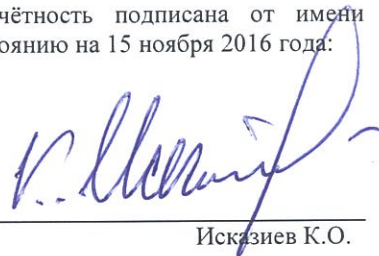 чётность подписана от имени
оянию на 15 ноября 2016 года:
Исказиев К.О.